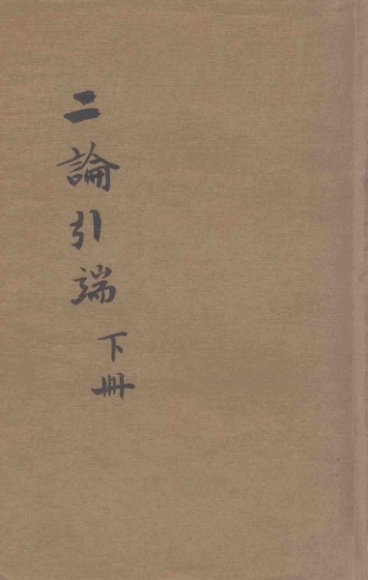 二論引端
下冊